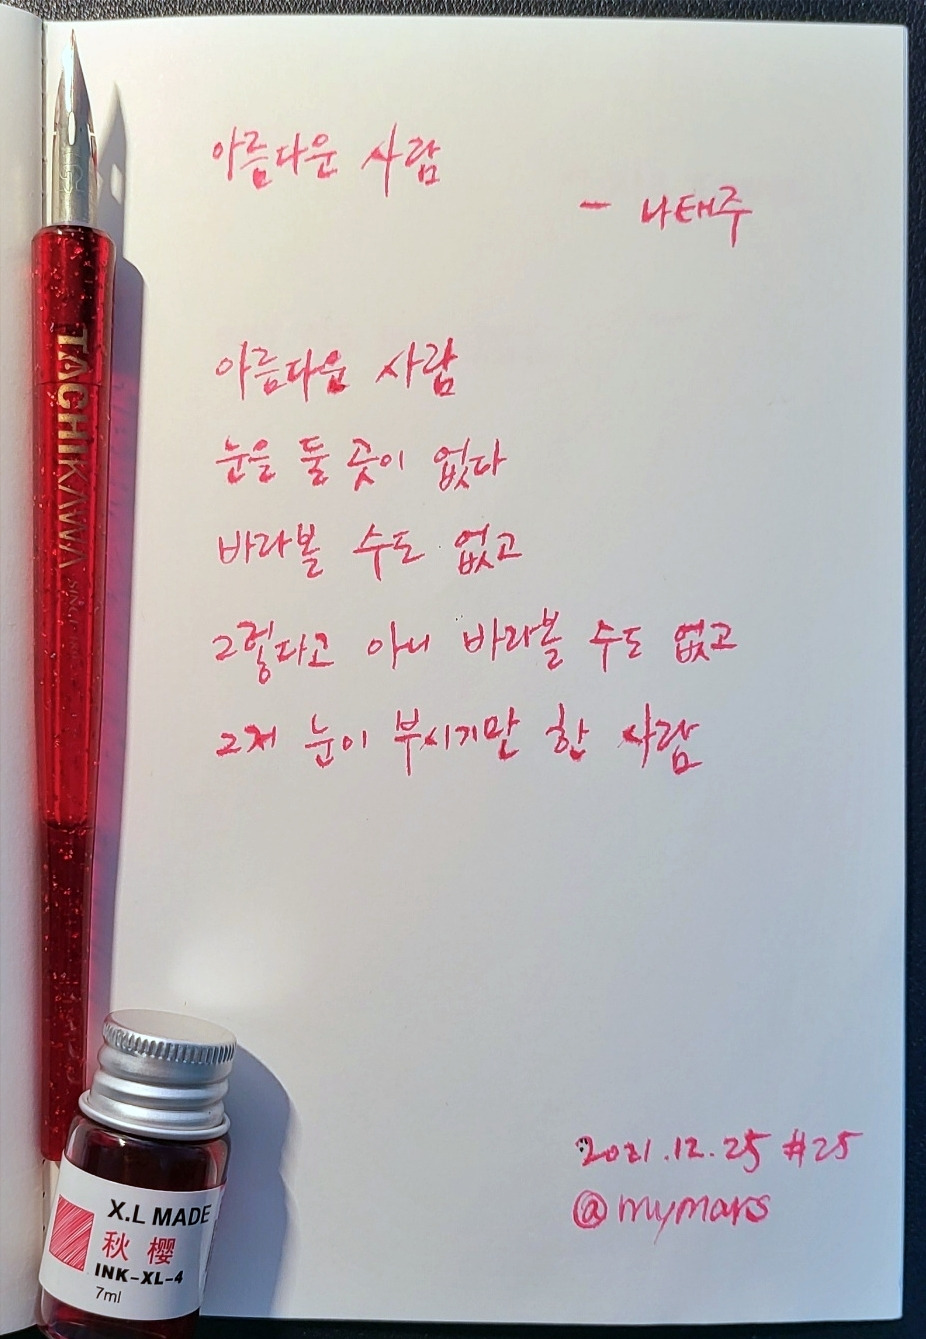 아름다운 사람
- 나태주
아름다운 사람
눈을 둘 곳이 없다
바라볼 수도 없고
그렇다고 아니 바라볼 수도 없고
그저 눈이 부시기만 한 사람
2021.12.25 #25
@mymars
TACHIKAWA
X.L MADE
秋 樱
INK-XL-4
7ml